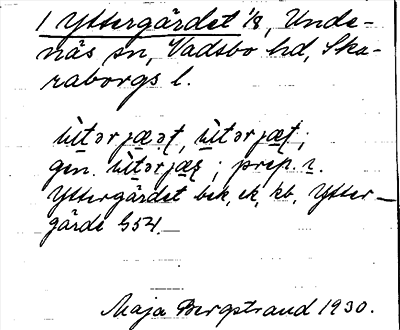 1 Yttergärdet 1/8, Unde-
näs sn, Vadsbo hd, Ska-
raborgs l.
gen. ; prep. i.
Yttergärdet bek, ek, kb, Ytter-
gärde G54.
Maja Bergstrand 1930.